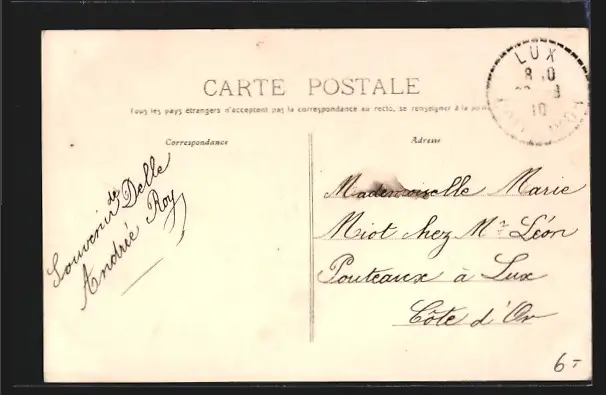 CARTE POSTALE
Tous les pays étrangers n'acceptent pas la correspondance au recto, se renseigner à la poste
Correspondance
Adresse
Souvenir de Delle
Andrée Roy
Mademoiselle Marie
Miot chez Mr Léon
Pouteaux à Lux
Côte d'Or
LUX
8 10
10
6-